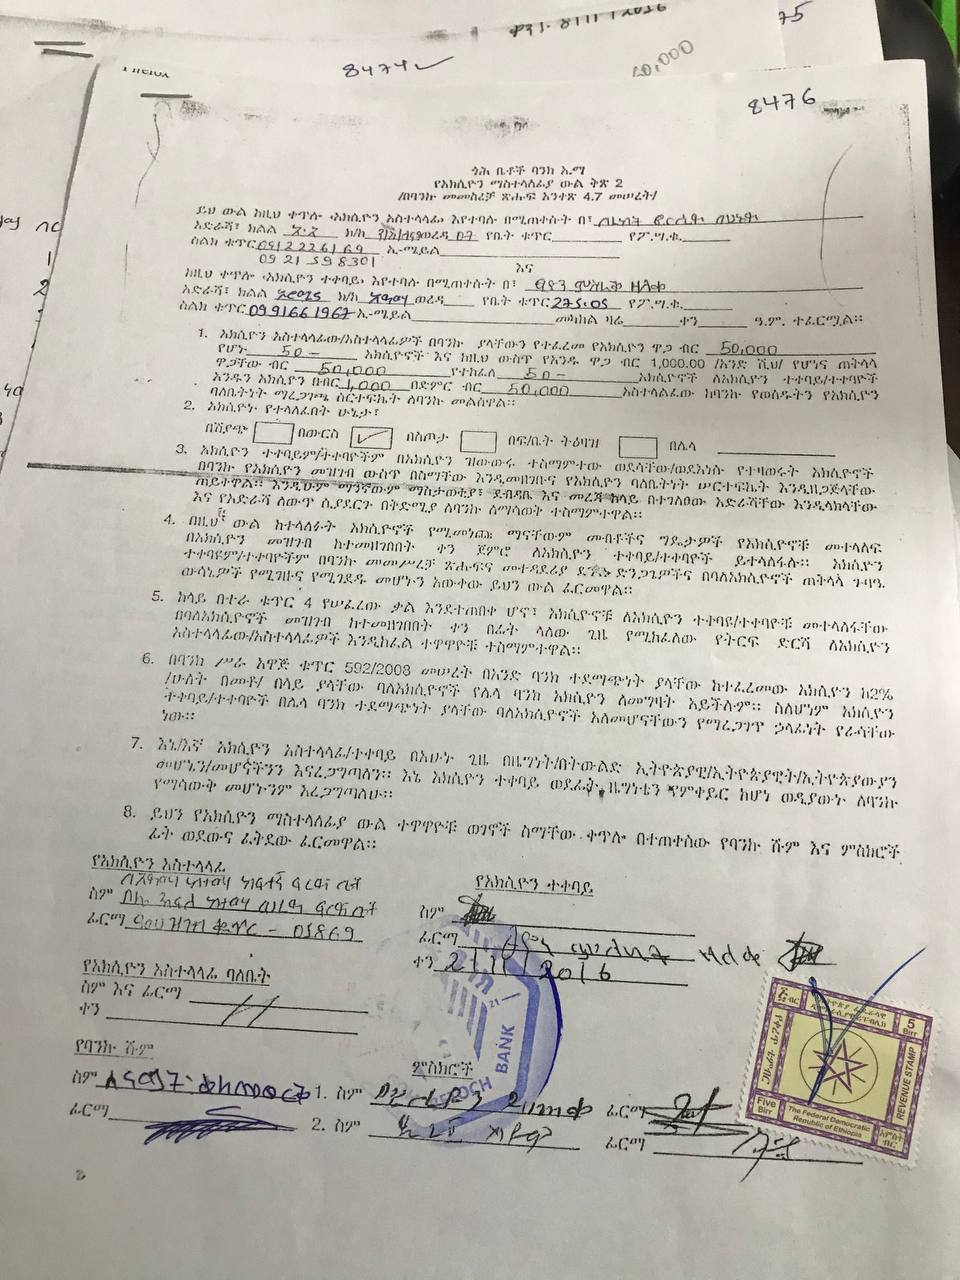 ቀን 8/11/2016
75
8474
10,000
8476
ጎሕ ቤቶች ባንክ አ.ማ
የአክሲዮን ማስተላለፊያ ውል ቅጽ 2
/በባንኩ መመስረቻ ጽሑፍ አንቀጽ 4.7 መሠረት/
ይህ ውል ከዚህ ቀጥሎ ‹አክሲዮን አስተላላፊ› እየተባሉ በሚጠቀሱት በ፣
አድራሻ፣ ክልል አ.አ ክ/ከ ወረዳ 07 የቤት ቁጥር የፖ.ሣ.ቁ.
ስልክ ቁጥር 0912226169 ኢ-ሜይል
0921598301
እና
ከዚህ ቀጥሎ ‹አክሲዮን ተቀባይ› እየተባሉ በሚጠቀሱት በ፣
አድራሻ፣ ክልል ክ/ከ ወረዳ የቤት ቁጥር 275.05 የፖ.ሣ.ቁ.
ስልክ ቁጥር 0991661967 ኢ-ሜይል መካከል ዛሬ ቀን ዓ.ም. ተፈርሟል።
1. አክሲዮን አስተላላፊው/አስተላላፊዎች በባንኩ ያላቸውን የተፈረመ የአክሲዮን ዋጋ ብር 50,000
የሆነ 50 – አክሲዮኖች እና ከዚህ ውስጥ የአንዱ ዋጋ ብር 1,000.00 /አንድ ሺህ/ የሆነና ጠቅላላ
ዋጋቸው ብር 50,000 የተከፈለ 50 – አክሲዮኖች ለአክሲዮን ተቀባይ/ተቀባዮች
አንዱን አክሲዮን በብር 1,000 በድምር ብር 50,000 አስተላልፈው ከባንኩ የወሰዱትን የአክሲዮን
ባለቤትነት ማረጋገጫ ሰርተፍኬት ለባንኩ መልሰዋል።
2. አክሲዮኑ የተላለፈበት ሁኔታ፣
በሽያጭ በውርስ ✓ በስጦታ በፍ/ቤት ትዕዛዝ በሌላ
3. አክሲዮን ተቀባይም/ተቀባዮችም በአክሲዮን ዝውውሩ ተስማምተው ወደሳቸው/ወደእነሱ የተዛወሩት አክሲዮኖች
በባንኩ የአክሲዮን መዝገብ ውስጥ በስማቸው እንዲመዘገቡና የአክሲዮን ባለቤትነት ሠርተፍኬት እንዲበጅላቸው
ጠይቀዋል። እንዲሁም ማንኛውም ማስታወቂያ፣ ደብዳቤ እና መረጃ ከላይ በተገለፀው አድራሻቸው እንዲላክላቸው
እና የአድራሻ ለውጥ ሲያደርጉ በቅድሚያ ለባንኩ ለማሳወቅ ተስማምተዋል።
4. በዚህ ውል ከተላለፉት አክሲዮኖች የሚመነጩ ማናቸውም መብቶችና ግዴታዎች የአክሲዮኖቹ መተላለፍ
በአክሲዮን መዝገብ ከተመዘገበበት ቀን ጀምሮ ለአክሲዮን ተቀባይ/ተቀባዮች ይተላለፋሉ። አክሲዮን
ተቀባዩም/ተቀባዮችም በባንኩ መመሥረቻ ጽሑፍና መተዳደሪያ ደንቡ ድንጋጌዎችና በባለአክሲዮኖች ጠቅላላ ጉባዔ
ውሳኔዎች የሚገዙና የሚገደዱ መሆኑን አውቀው ይህን ውል ፈርመዋል።
5. ከላይ በተራ ቁጥር 4 የሠፈረው ቃል እንደተጠበቀ ሆኖ፣ አክሲዮኖቹ ለአክሲዮን ተቀባዩ/ተቀባዮቹ መተላለፋቸው
በባለአክሲዮኖች መዝገብ ከተመዘገበበት ቀን በፊት ላለው ጊዜ የሚከፈለው የትርፍ ድርሻ ለአክሲዮን
አስተላላፊው/አስተላላፊዎች እንዲከፈል ተዋዋዮቹ ተስማምተዋል።
6. በባንክ ሥራ አዋጅ ቁጥር 592/2008 መሠረት በአንድ ባንክ ተደማጭነት ያላቸው ከተፈረመው አክሲዮን ከ2%
/ሁለት በመቶ/ በላይ ያላቸው ባለአክሲዮኖች የሌላ ባንክ አክሲዮን ለመግዛት አይችሉም። ስለሆነም አክሲዮን
ተቀባይ/ተቀባዮች በሌላ ባንክ ተደማጭነት ያላቸው ባለአክሲዮኖች አለመሆናቸውን የማረጋገጥ ኃላፊነት የራሳቸው
ነው።
7. እኔ/እኛ አክሲዮን አስተላላፊ/ተቀባይ በአሁኑ ጊዜ በዜግነት/በትውልድ ኢትዮጵያዊ/ኢትዮጵያዊት/ኢትዮጵያውያን
መሆኔን/መሆናችንን እናረጋግጣለን። እኔ አክሲዮን ተቀባይ ወደፊት ዜግነቴን የምቀይር ከሆነ ወዲያውኑ ለባንኩ
የማሳውቅ መሆኑንም አረጋግጣለሁ።
8. ይህን የአክሲዮን ማስተላለፊያ ውል ተዋዋዮቹ ወገኖች ስማቸው ቀጥሎ በተጠቀሰው የባንኩ ሹም እና ምስክሮች
ፊት ወደውና ፈቅደው ፈርመዋል።
የአክሲዮን አስተላላፊ
የአክሲዮን ተቀባይ
ስም
ስም
ፊርማ የመዝገብ ቁጥር – 05869
ፊርማ
ቀን 2/11/2016
የአክሲዮን አስተላላፊ ባለቤት
ስም እና ፊርማ
ቀን
የባንኩ ሹም
ምስክሮች
ስም
1. ስም ፊርማ
ፊርማ
2. ስም ፊርማ
BANK
5
Birr
REVENUE STAMP
Five
Birr
The Federal Democratic
Republic of Ethiopia
አምስት
ብር